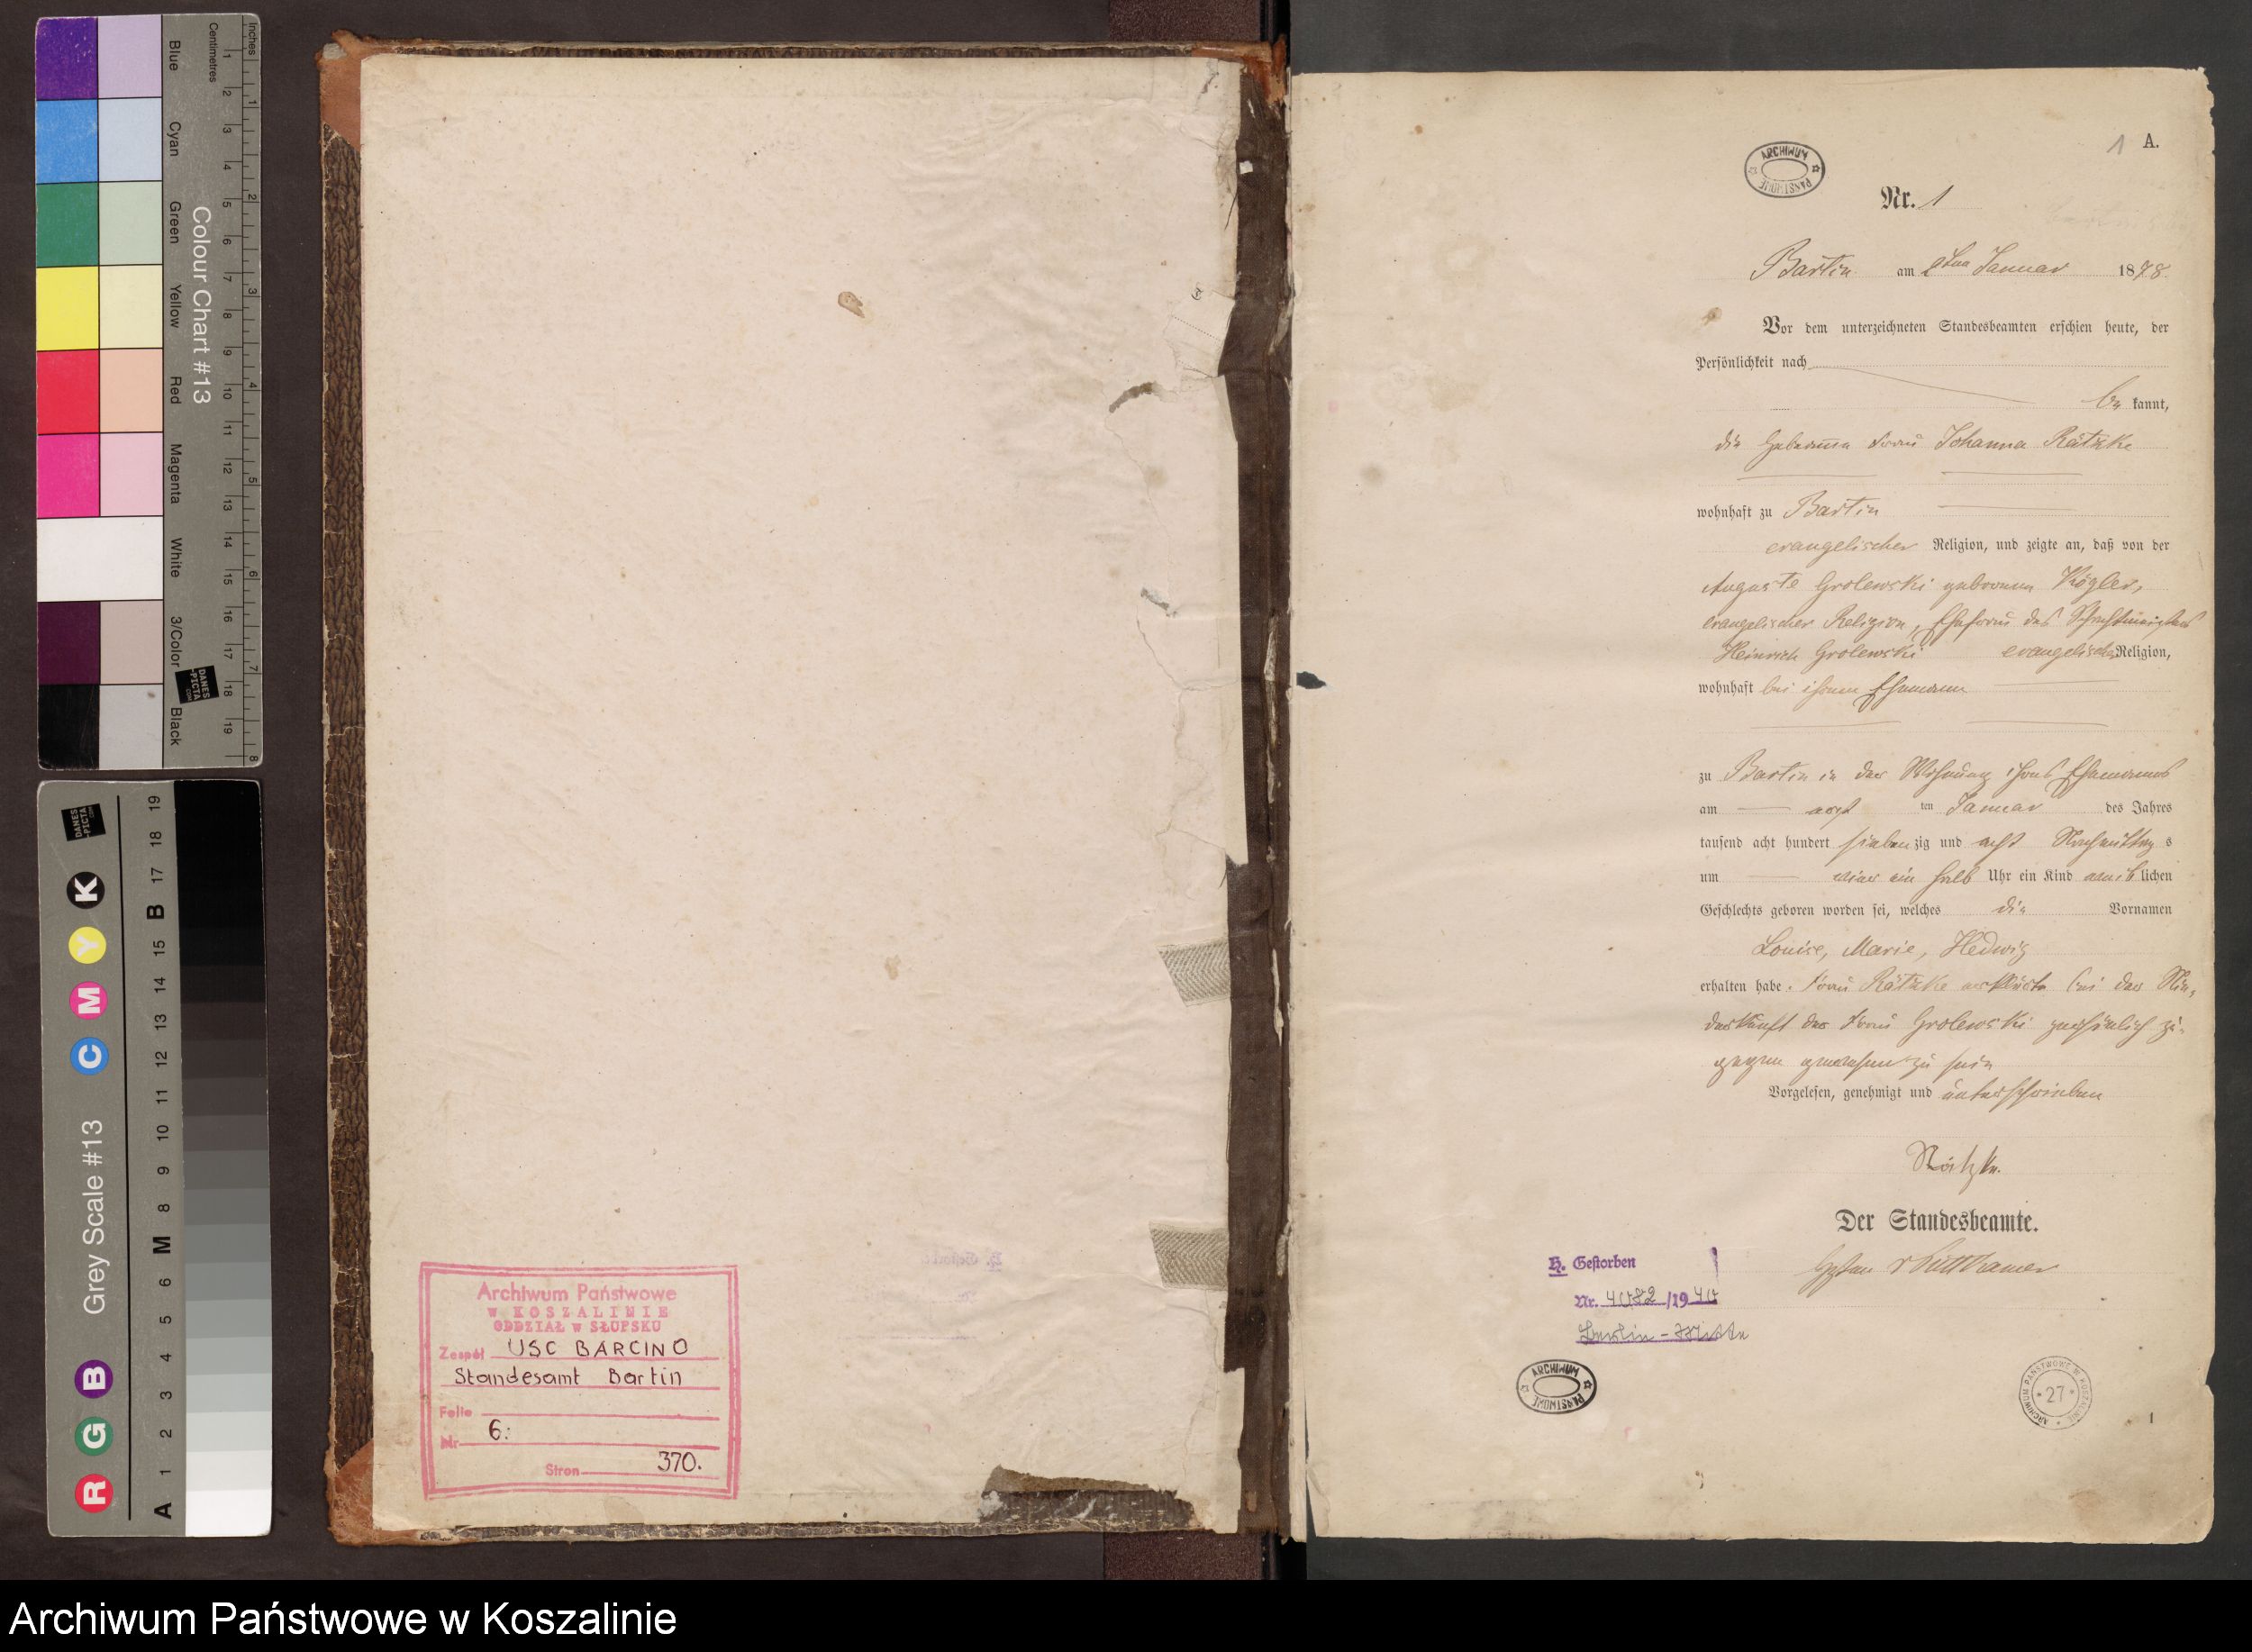 Blue
Cyan
Green
Yellow
Red
Magenta
White
3/Color
Black
Colour Chart #13
Centimetres
Inches
1 2 3 4 5 6 7 8 9 10 11 12 13 14 15 16 17 18 19
1 2 3 4 5 6 7 8
DANES
-PICTA
.COM
Grey Scale #13
R G B C M Y K
A 1 2 3 4 5 6 M 8 9 10 11 12 13 14 15 B 17 18 19
DANES
-PICTA
.COM
Archiwum Państwowe
w KOSZALINIE
ODDZIAŁ w SŁUPSKU
Zespół USC BARCINO
Standesamt Bartin
Nr 6.
Stron 370.
1 A.
ARCHIWUM PAŃSTWOWE
Nr. 1
Bartin am 8ten Januar 1878
Vor dem unterzeichneten Standesbeamten erschien heute, der
Persönlichkeit nach
be kannt,
die Hebamme Frau Johanna Rätzke
wohnhaft zu Bartin
evangelischer Religion, und zeigte an, daß von der
Auguste Grolewski geborenen Kögler,
evangelischer Religion, Ehefrau des
Heinrich Grolewski evangelischer Religion,
wohnhaft bei ihrem Ehemann
zu Bartin in der Wohnung ihres Ehemannes
am ten Januar des Jahres
tausend acht hundert siebenzig und acht Nachmittag s
um vier ein halb Uhr ein Kind weiblichen
Geschlechts geboren worden sei, welches die Vornamen
Louise, Marie, Hedwig
erhalten habe. Frau Rätzke erklärte bei der Nie-
derkunft der Frau Grolewski persönlich zu-
gegen gewesen zu sein
Vorgelesen, genehmigt und unterschrieben
Rätzke.
Der Standesbeamte.
v Puttkamer
H. Gestorben
Nr. 4082/1940
Berlin - Mitte
ARCHIWUM PAŃSTWOWE
ARCHIWUM PAŃSTWOWE W KOSZALINIE
* 27 *
1
Archiwum Państwowe w Koszalinie